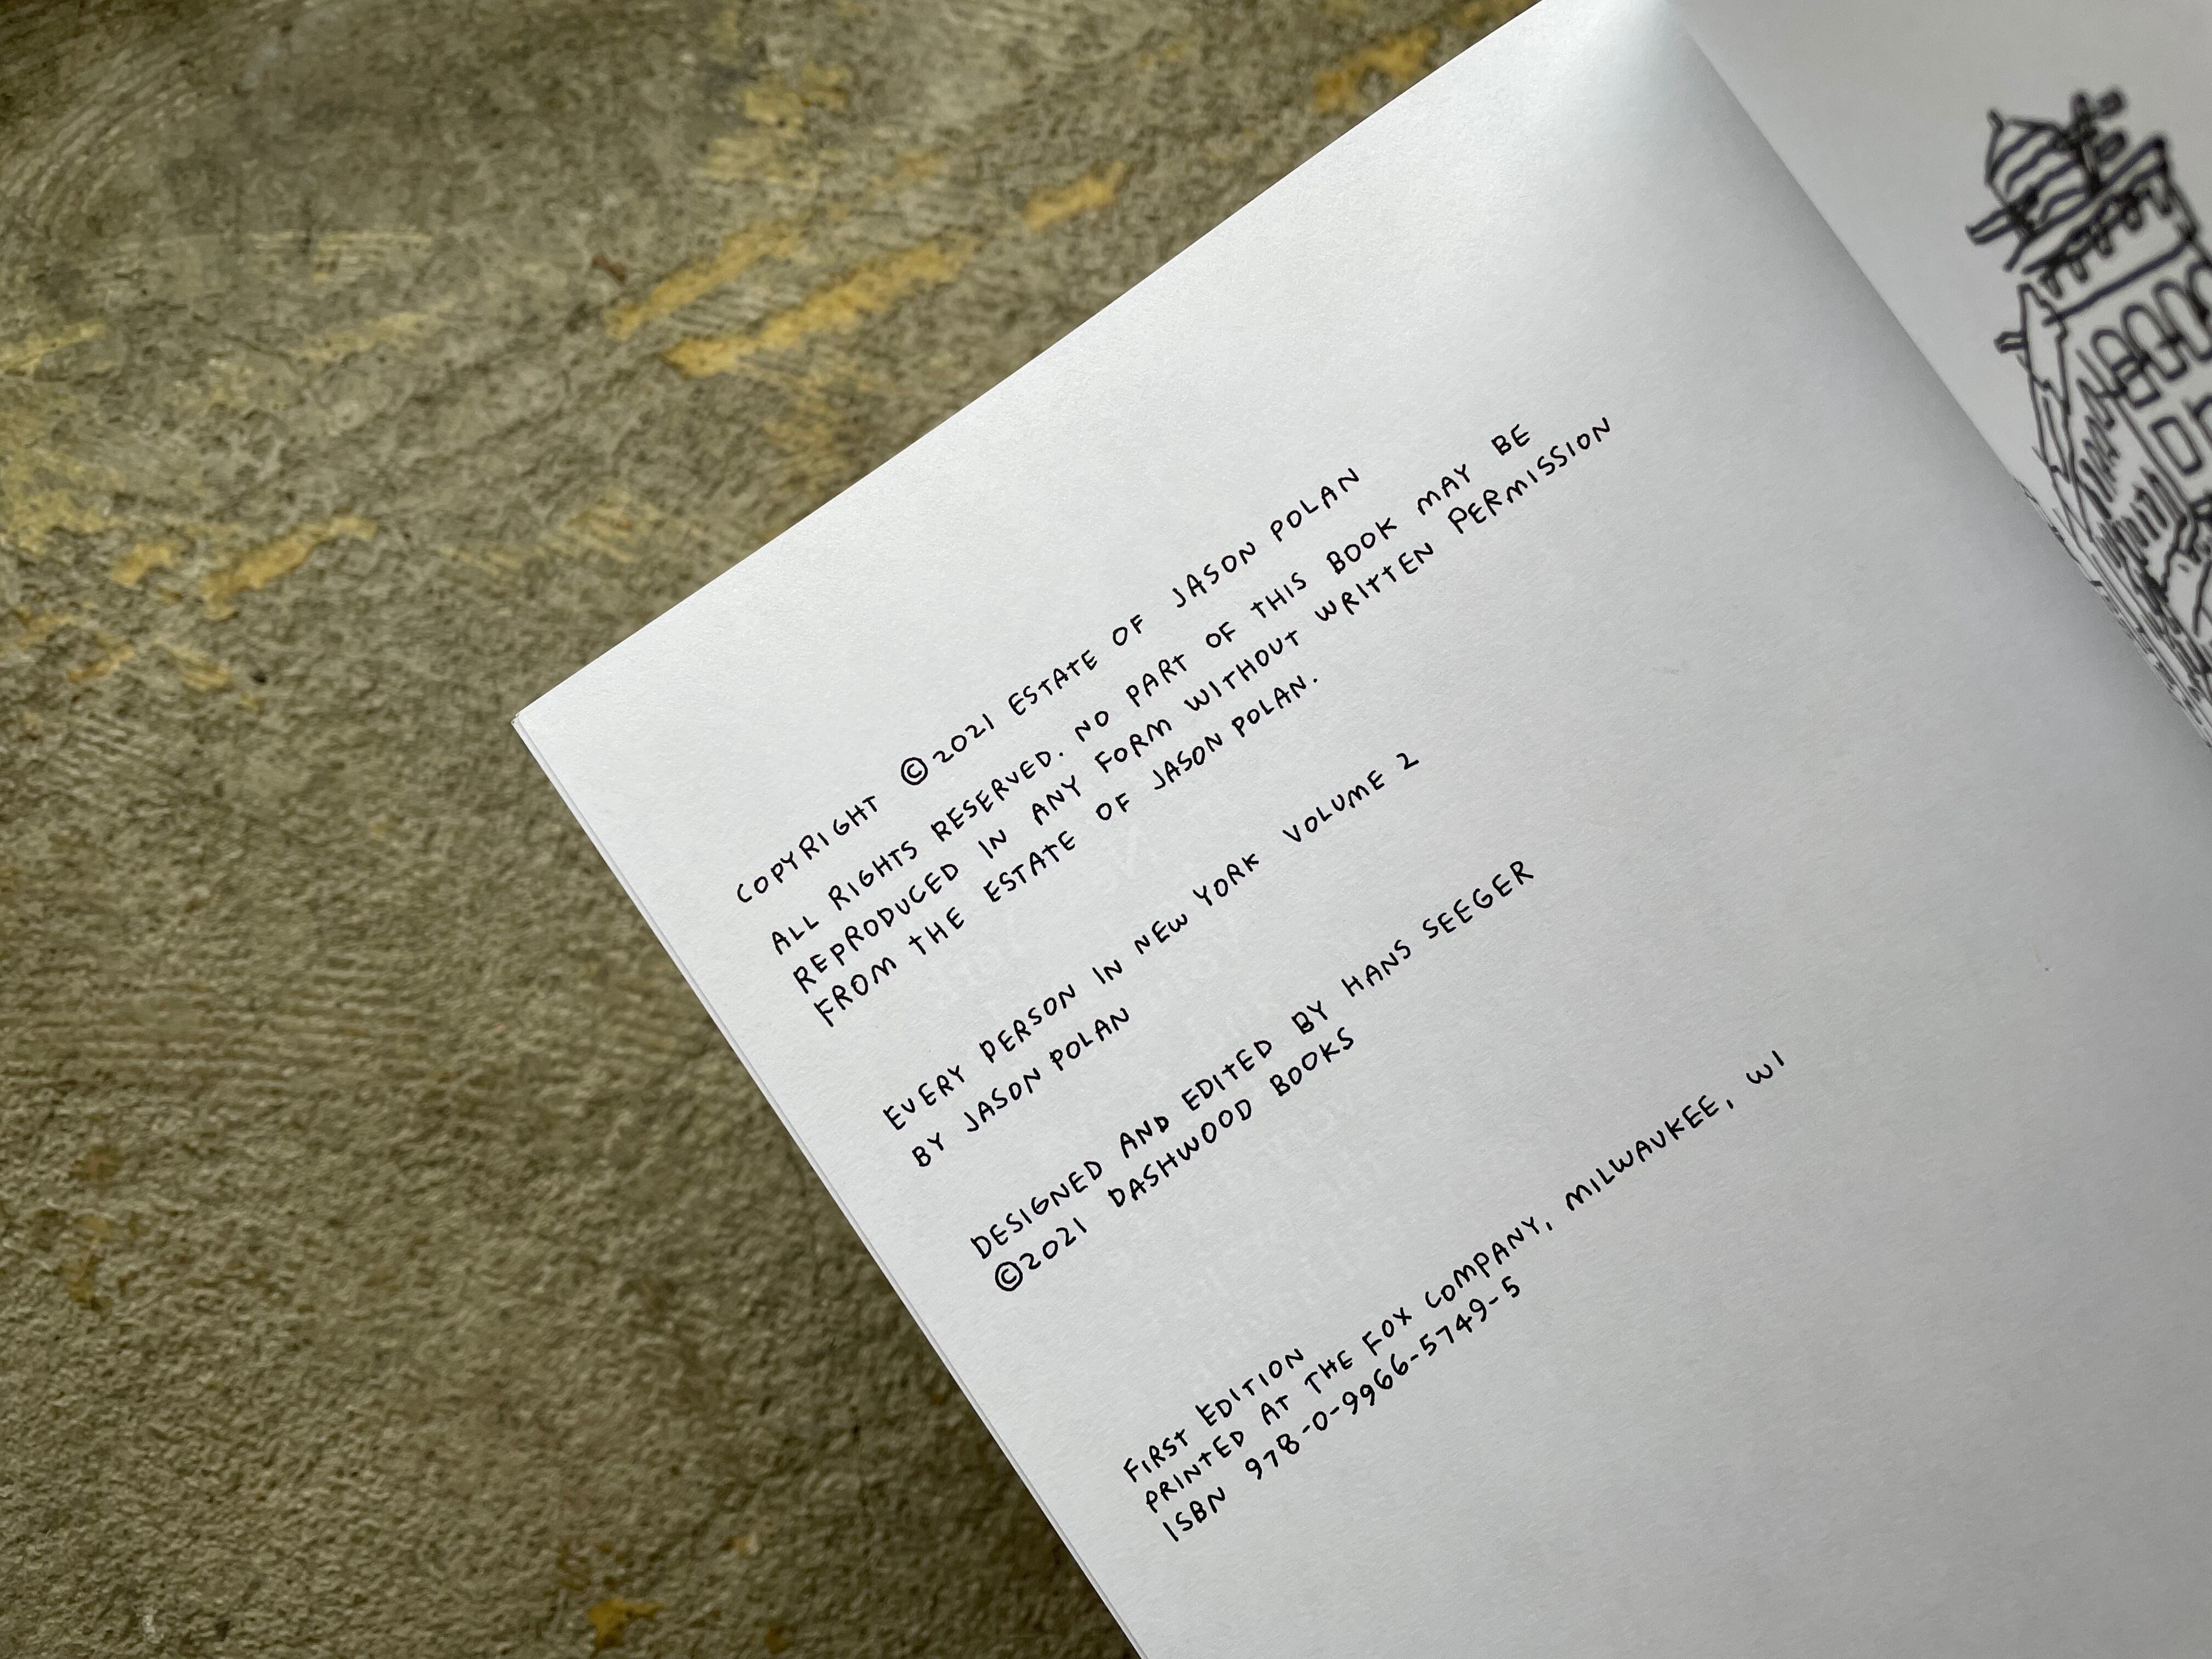 COPYRIGHT ©2021 ESTATE OF JASON POLAN
ALL RIGHTS RESERVED. NO PART OF THIS BOOK MAY BE
REPRODUCED IN ANY FORM WITHOUT WRITTEN PERMISSION
FROM THE ESTATE OF JASON POLAN.
EVERY PERSON IN NEW YORK VOLUME 2
BY JASON POLAN
DESIGNED AND EDITED BY HANS SEEGER
©2021 DASHWOOD BOOKS
FIRST EDITION
PRINTED AT THE FOX COMPANY, MILWAUKEE, WI
ISBN 978-0-9966-5749-5